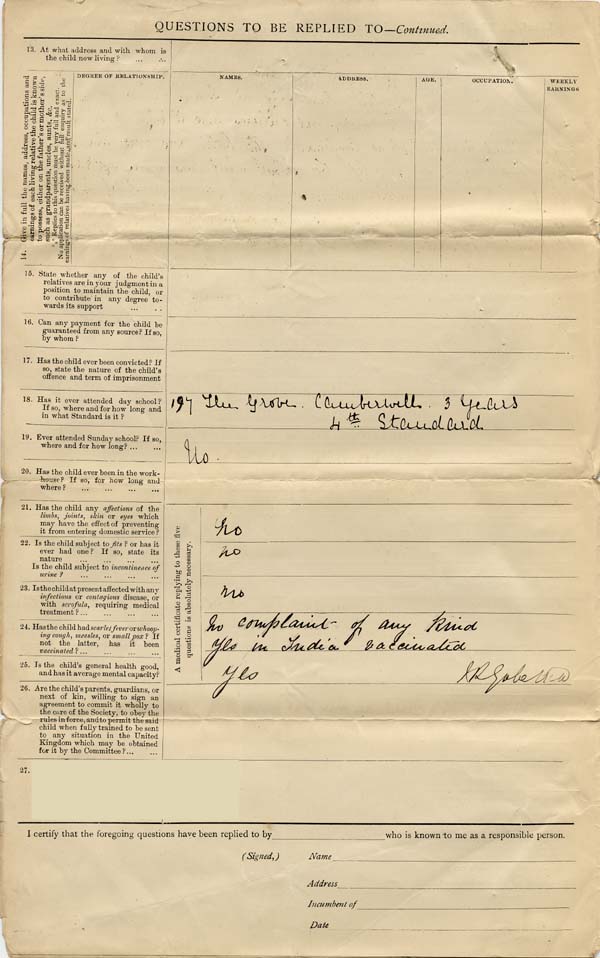 QUESTIONS TO BE REPLIED TO—Continued.
13. At what address and with whom is
the child now living? ... ...
14. Give in full the names, address, occupations and
earnings of each living relative the child is known
to possess, either on the father's or mother's side,
such as grandparents, uncles, aunts, &c.
Replies to this question must be very full and exact.
No application can be received without full enquiry as to the
earnings of relatives having been made, and result stated.
DEGREE OF RELATIONSHIP.
NAMES.
ADDRESS.
AGE.
OCCUPATION.
WEEKLY
EARNINGS
15. State whether any of the child's
relatives are in your judgment in a
position to maintain the child, or
to contribute in any degree to-
wards its support ... ..
16. Can any payment for the child be
guaranteed from any source? If so,
by whom?
17. Has the child ever been convicted? If
so, state the nature of the child's
offence and term of imprisonment
18. Has it ever attended day school?
If so, where and for how long and
in what Standard is it?
197 The Grove. Camberwell. 3 Years
4th Standard
19. Ever attended Sunday school? If so,
where and for how long? ... ...
No.
20. Has the child ever been in the work-
house? If so, for how long and
where? ... ... ... ...
A medical certificate replying to these five
questions is absolutely necessary.
21. Has the child any affections of the
limbs, joints, skin or eyes which
may have the effect of preventing
it from entering domestic service?
No
22. Is the child subject to fits? or has it
ever had one? If so, state its
nature ... ... ... ...
Is the child subject to incontinence of
urine? ... ... ... ...
no
23. Is the child at present affected with any
infectious or contagious disease, or
with scrofula, requiring medical
treatment? ... ... ... ...
no
24. Has the child had scarlet fever or whoop-
ing cough, measles, or small pox? If
not the latter, has it been
vaccinated? ... ... ... ...
No complaint of any kind
Yes in India vaccinated
25. Is the child's general health good,
and has it average mental capacity?
Yes
26. Are the child's parents, guardians, or
next of kin, willing to sign an
agreement to commit it wholly to
the care of the Society, to obey the
rules in force, and to permit the said
child when fully trained to be sent
to any situation in the United
Kingdom which may be obtained
for it by the Committee? ... ...
27.
I certify that the foregoing questions have been replied to by who is known to me as a responsible person.
(Signed,) Name
Address
Incumbent of
Date